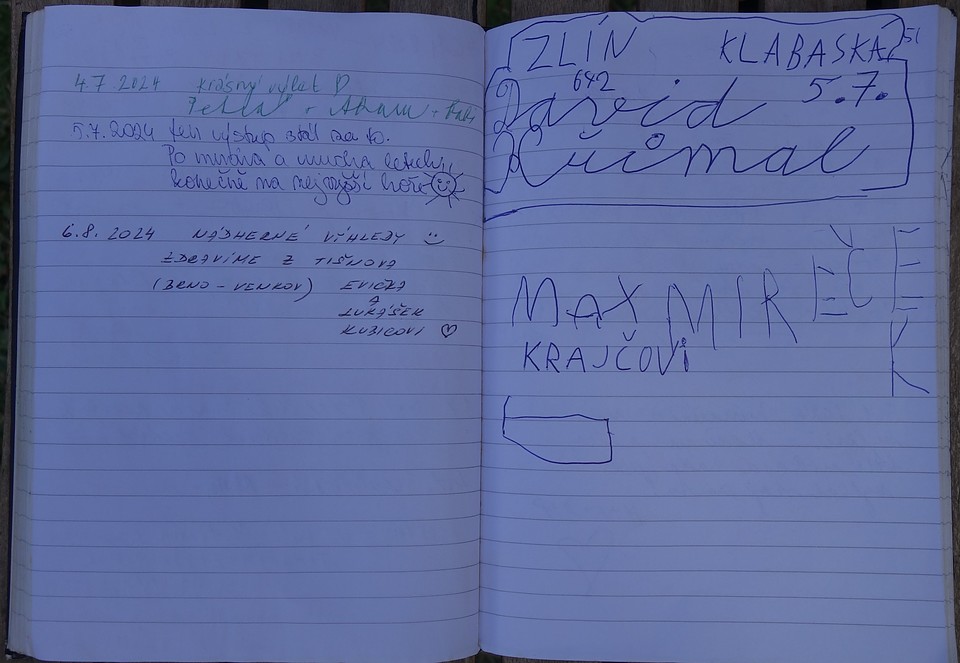 4.7 2024 krásný výlet :D
Petra + Adam +
5.7.2024 Ten výstup stál za to.
Po mnoha a mnoha letech,
konečně na nejvyšší hoře
6.8. 2024 NÁDHERNÉ VÝHLEDY :)
ZDRAVÍME Z TIŠNOVA
(BRNO - VENKOV) EVIČKA
A
LUKÁŠEK
KUBICOVI ♡
ZLÍN KLABASKA 51
642
David 5.7.
Křižmal
MAX MIREČEK
KRAJČOVi